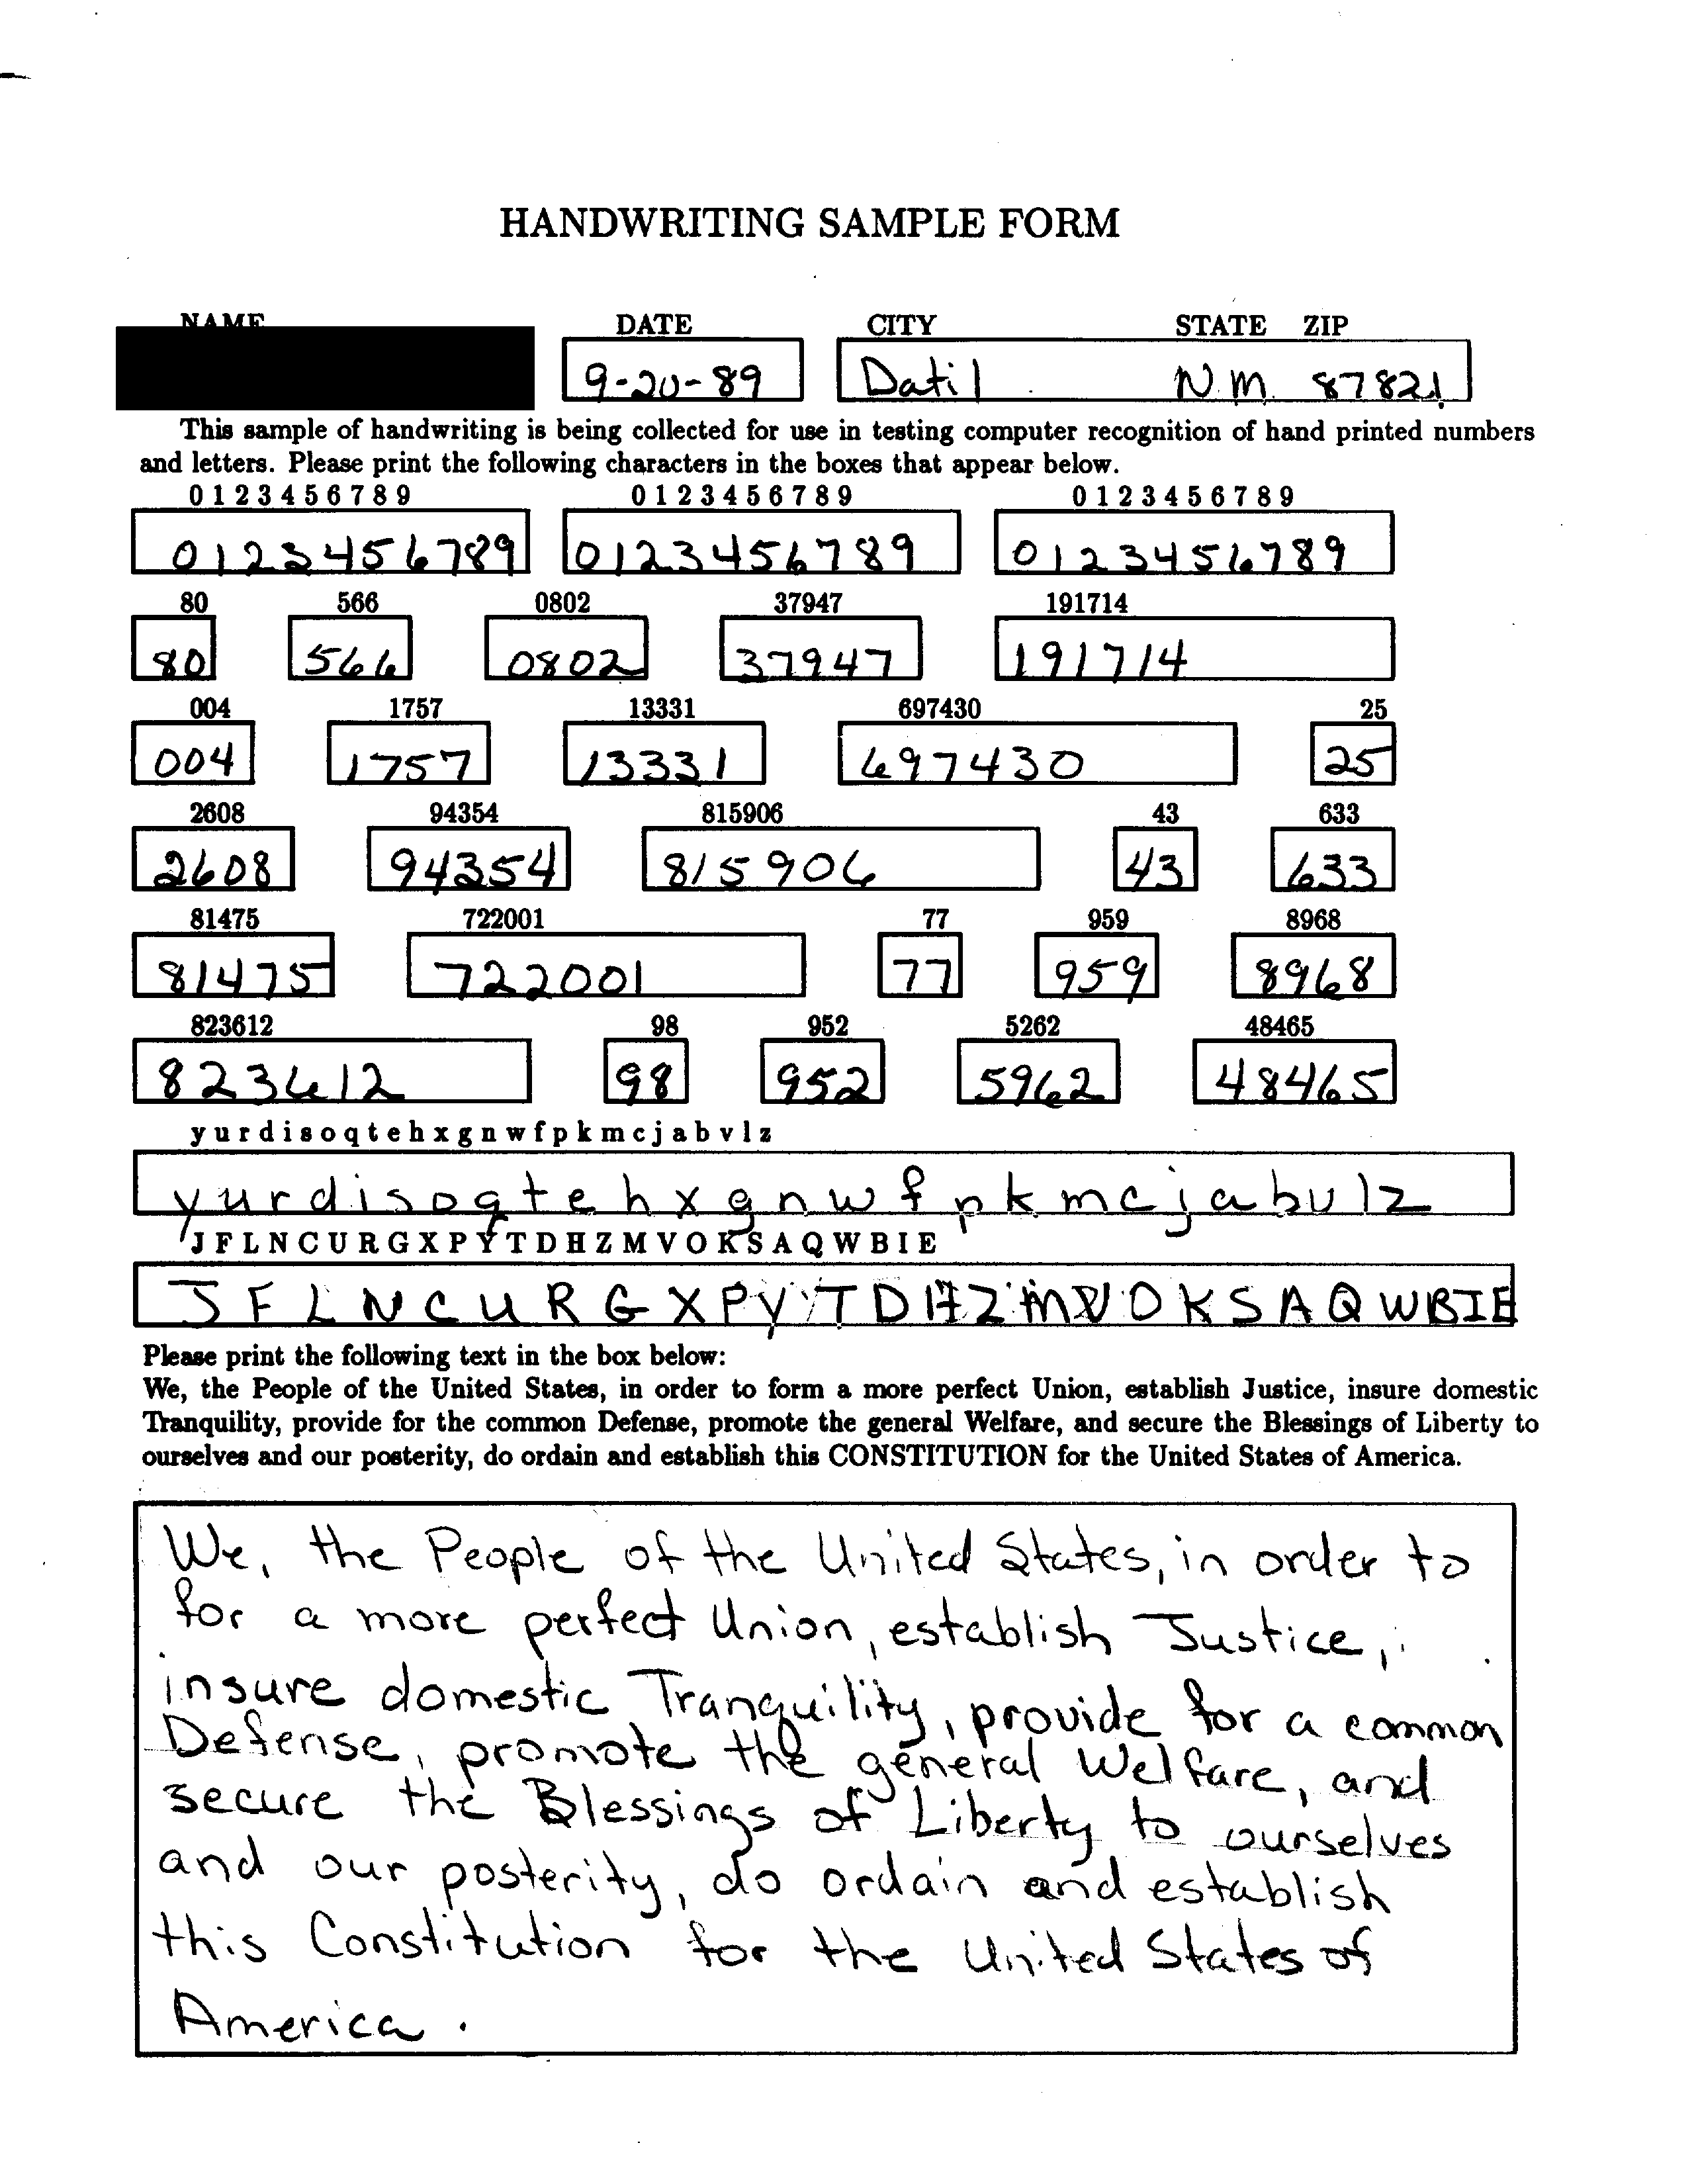 HANDWRITING SAMPLE FORM
NAME DATE CITY STATE ZIP
9-20-89 Datil N.M. 87821
This sample of handwriting is being collected for use in testing computer recognition of hand printed numbers
and letters. Please print the following characters in the boxes that appear below.
0 1 2 3 4 5 6 7 8 9 0 1 2 3 4 5 6 7 8 9 0 1 2 3 4 5 6 7 8 9
0123456789 0123456789 0123456789
80 566 0802 37947 191714
80 566 0802 37947 191714
004 1757 13331 697430 25
004 1757 13331 697430 25
2608 94354 815906 43 633
2608 94354 815906 43 633
81475 722001 77 959 8968
81475 722001 77 959 8968
823612 98 952 5262 48465
823612 98 952 5962 48465
y u r d i s o q t e h x g n w f p k m c j a b v l z
y u r d i s o q t e h x g n w f p k m c j a b v l z
J F L N C U R G X P Y T D H Z M V O K S A Q W B I E
J F L N C U R G X P Y T D H Z M V O K S A Q W B I E
Please print the following text in the box below:
We, the People of the United States, in order to form a more perfect Union, establish Justice, insure domestic
Tranquility, provide for the common Defense, promote the general Welfare, and secure the Blessings of Liberty to
ourselves and our posterity, do ordain and establish this CONSTITUTION for the United States of America.
We, the People of the United States, in order to
for a more perfect Union, establish Justice,
insure domestic Tranquility, provide for a common
Defense, promote the general Welfare, and
secure the Blessings of Liberty to ourselves
and our posterity, do ordain and establish
this Constitution for the United States of
America.